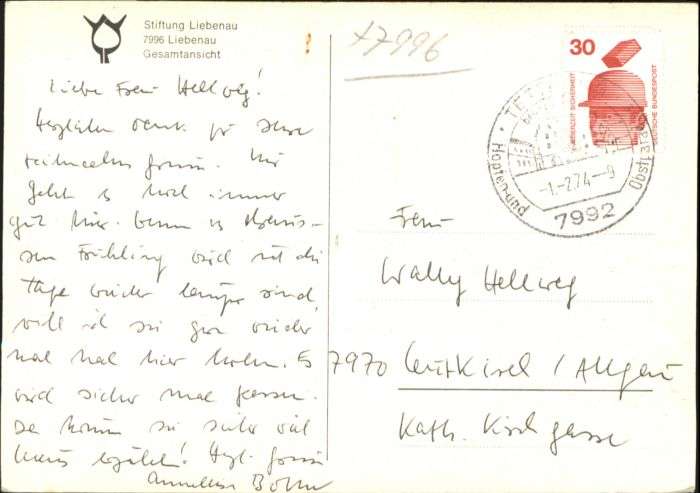 Stiftung Liebenau
7996 Liebenau
Gesamtansicht
+7996
30
JEDERZEIT SICHERHEIT
DEUTSCHE BUNDESPOST
TETTNANG
Hopfen- und Obstgarten
-1.-2.74-9
7992
Liebe Frau Hellweg!
Herzlichen Dank für Ihre
Mir
geht es noch immer
gut hier. Wenn es
Frühling wird und die
Tage wieder länger sind,
will ich Sie gern wieder
mal hier holen. Es
wird sicher mal passen.
Da können Sie sicher viel
Herzl. Grüße
Anneliese
Frau
Wally Hellweg
7970 Leutkirch / Allgäu
Kath. Kirchgasse